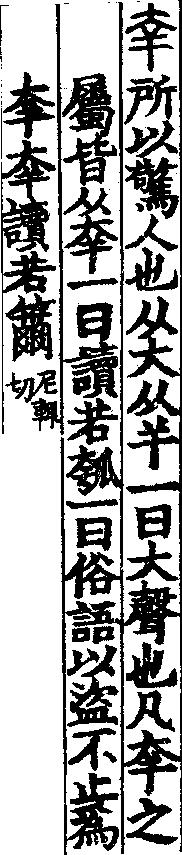 㚔所以驚人也从大从半一曰大聲也凡㚔之
屬皆从㚔一曰讀若瓠一曰俗語以盜不止爲
㚔㚔讀若籋尼輒切